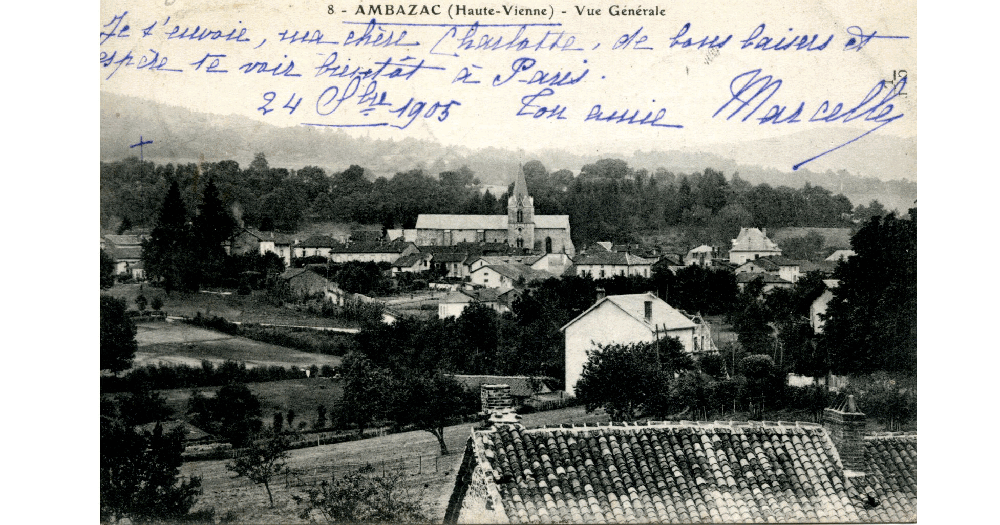 8 - AMBAZAC (Haute-Vienne) - Vue Générale
Je t'envoie, ma chère Charlotte, de bons baisers et
espère te voir bientôt à Paris.
24 Sbre 1905 Ton amie Marcelle